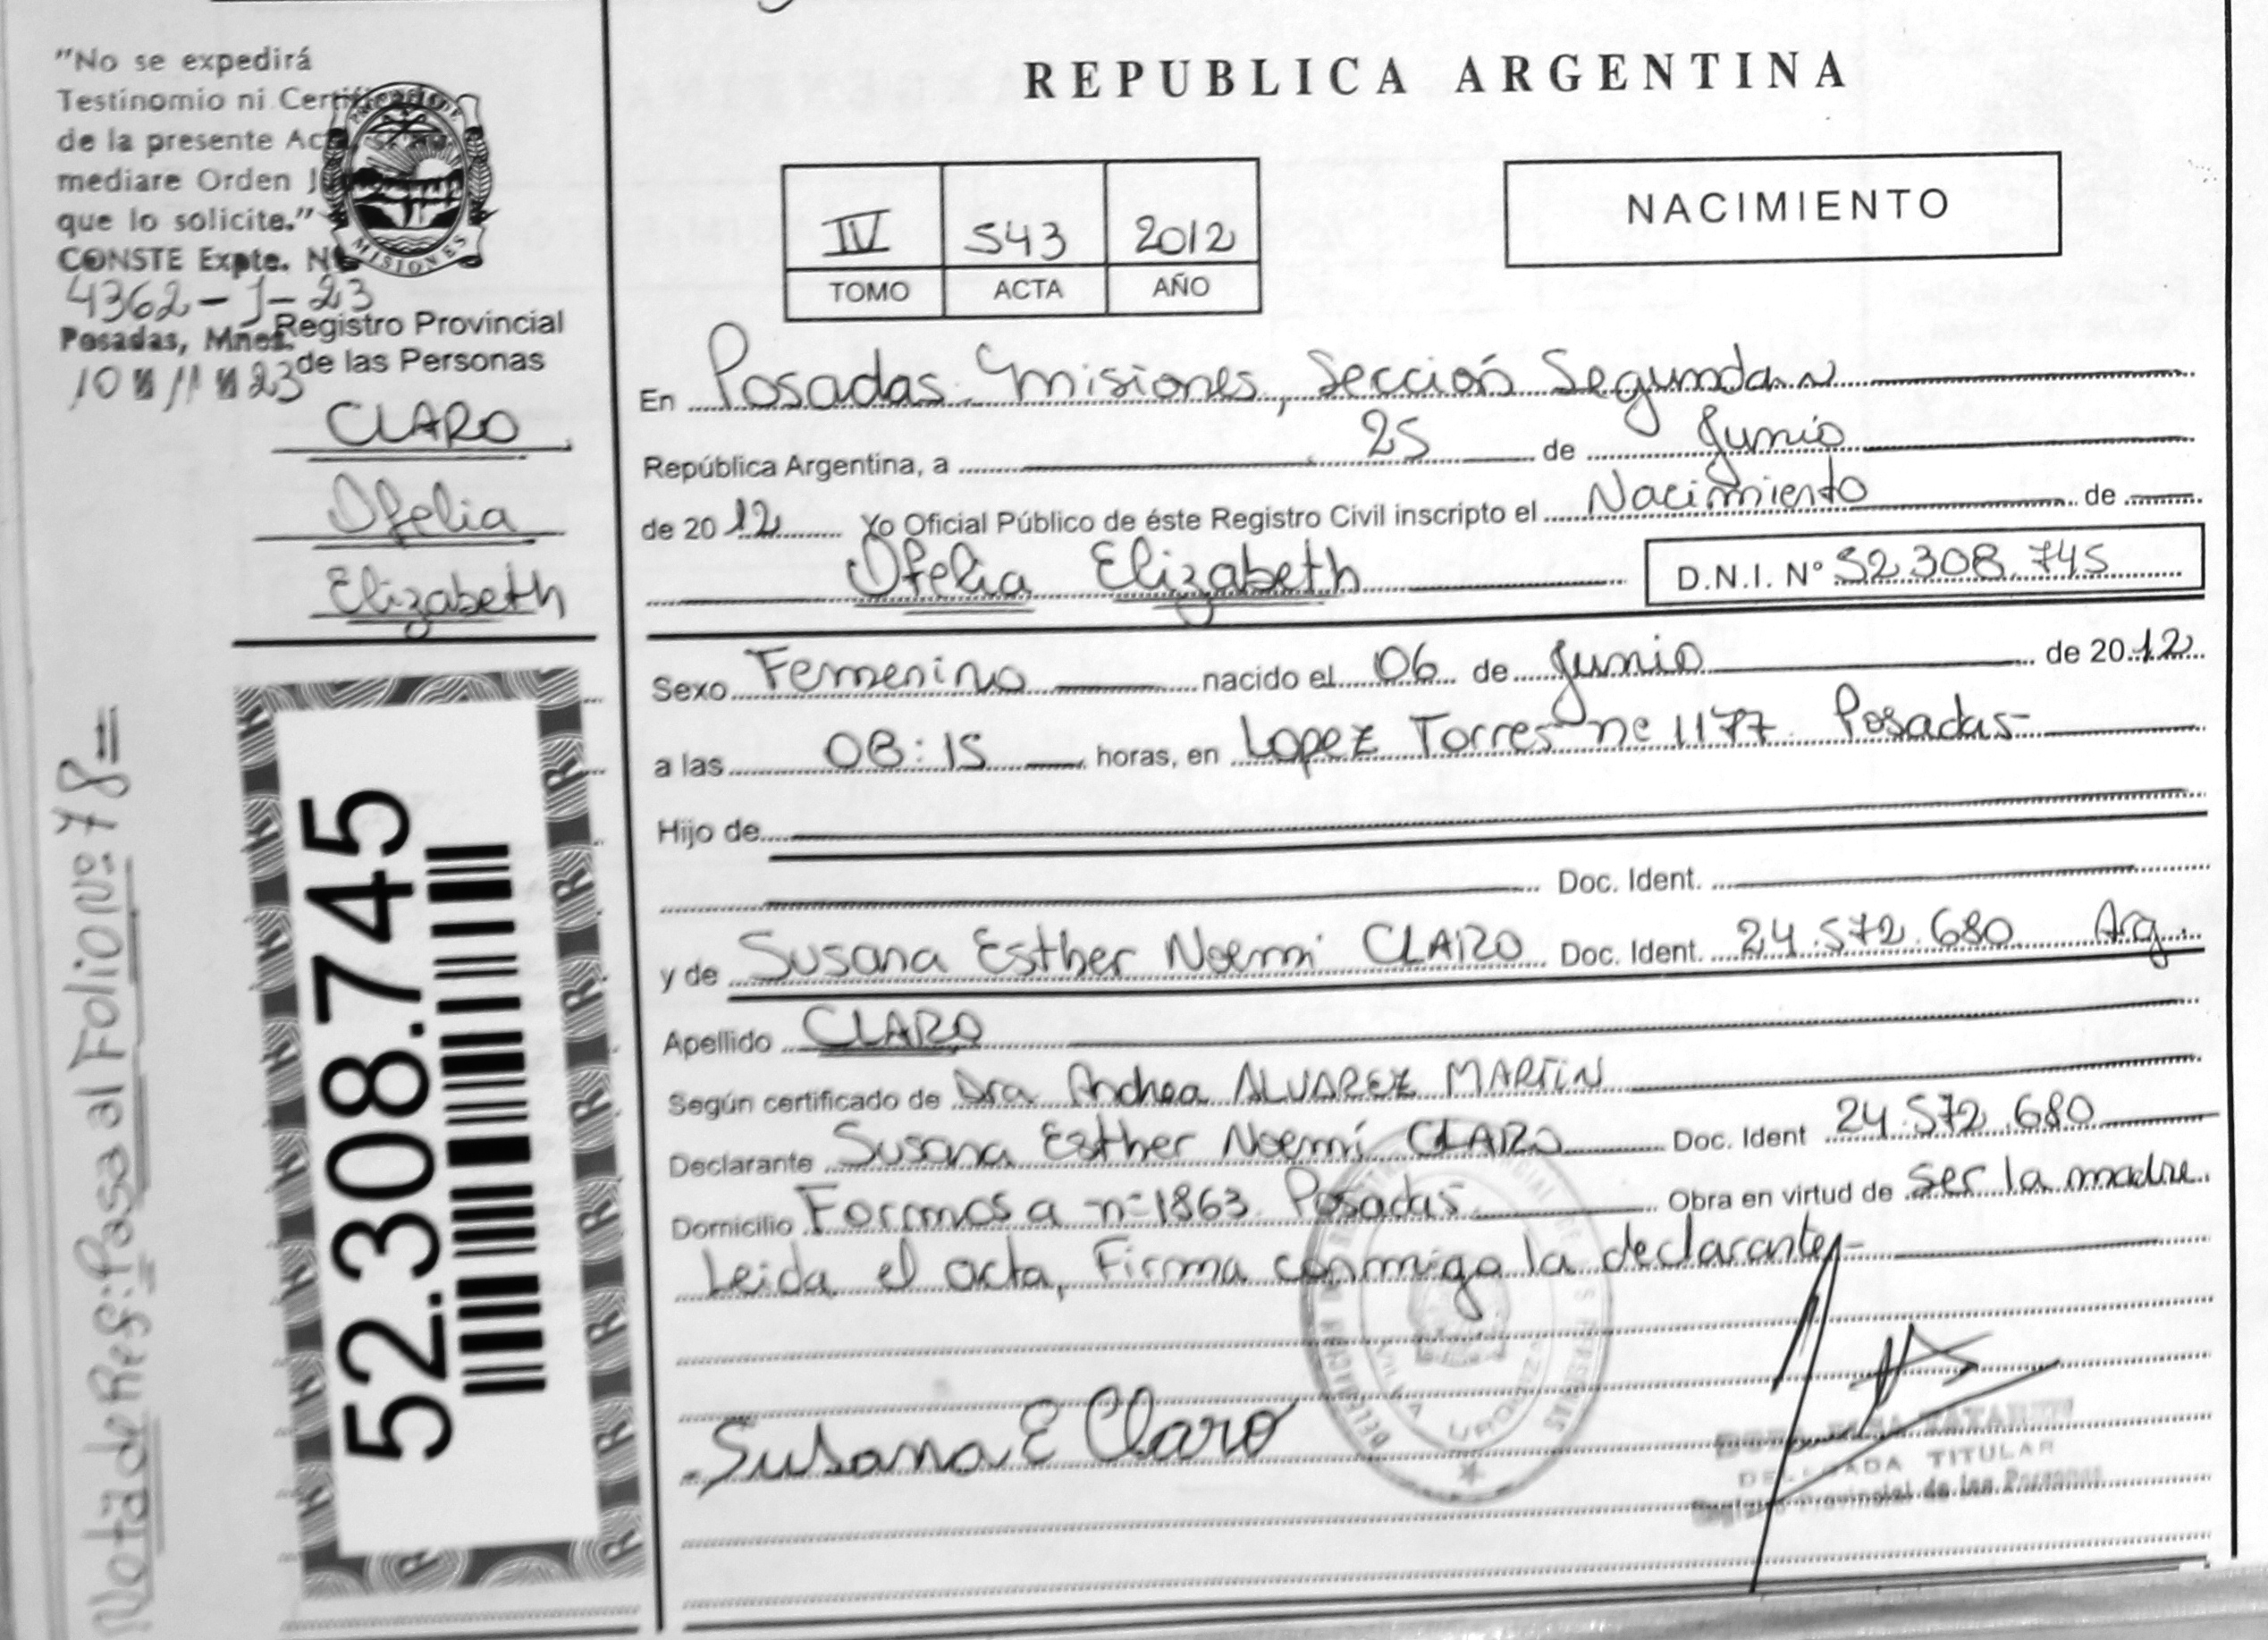 "No se expedirá
Testinomio ni Certificado
de la presente Acta, si no
mediare Orden
que lo solicite."
CONSTE Expte. Nº
4362-J-23
Posadas, Mnes.
10 11 23
MISIONES
Registro Provincial
de las Personas
CLARO
Ofelia
Elizabeth
Nota de Ref: Pasa al Folio Nº 78
52.308.745
REPUBLICA ARGENTINA
IV 543 2012
TOMO ACTA AÑO
NACIMIENTO
En Posadas. Misiones, Sección Segunda
República Argentina, a 25 de Junio
de 2012 Yo Oficial Público de éste Registro Civil inscripto el Nacimiento de
Ofelia Elizabeth D.N.I. Nº 52.308.745
Sexo Femenino nacido el 06 de Junio de 2012
a las 08:15 horas, en Lopez Torres nº 1177. Posadas
Hijo de
Doc. Ident.
y de Susana Esther Noemi CLARO Doc. Ident. 24.572.680 Arg.
Apellido CLARO
Según certificado de Dra Andrea ALVAREZ MARTIN
Declarante Susana Esther Noemí CLARO Doc. Ident 24.572.680
Domicilio Formosa nº 1863. Posadas Obra en virtud de ser la madre.
Leida el acta, Firma conmigo la declarante
Susana E Claro
VILLA URQUIZA
DELEGADA TITULAR
Registro Provincial de las Personas